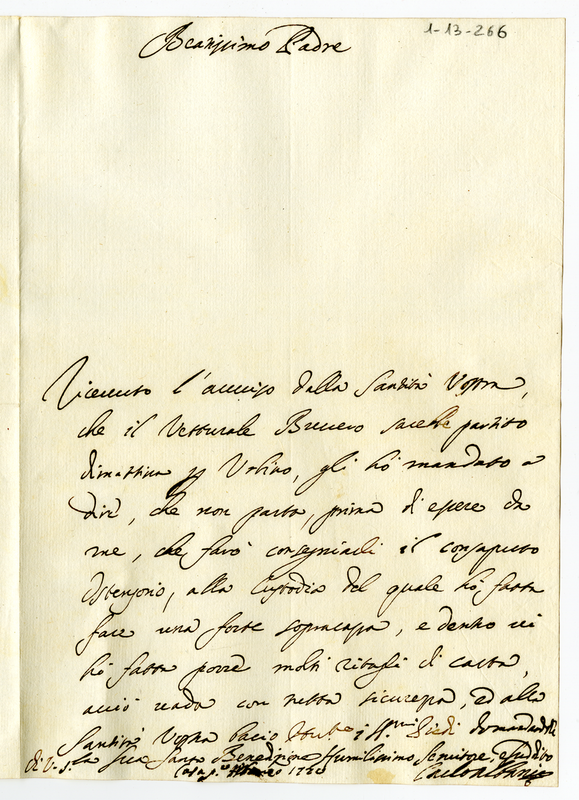 1-13-266
Beatissimo Padre
Ricevuto l'avviso dalla Santità Vostra,
che il Vetturale Bruero sarebbe partito
dimattina per Urbino, gli hò mandato a
dire, che non parta, prima di essere da
me, che farò consegniarli il consaputo
Ostensorio, alla Custodia del quale hò fatta
fare una forte sopracassa, e dentro vi
hò fatta porre molti ritagli di carta,
acciò vada con tutta sicurezza, ed alla
Santità Vostra bacio i SS.mi Piedi domandandole
la sua Santa Benedizione
di V. S. Casa p.o 1720 Humilissimo Servitore, e suddito
Carlo Albani